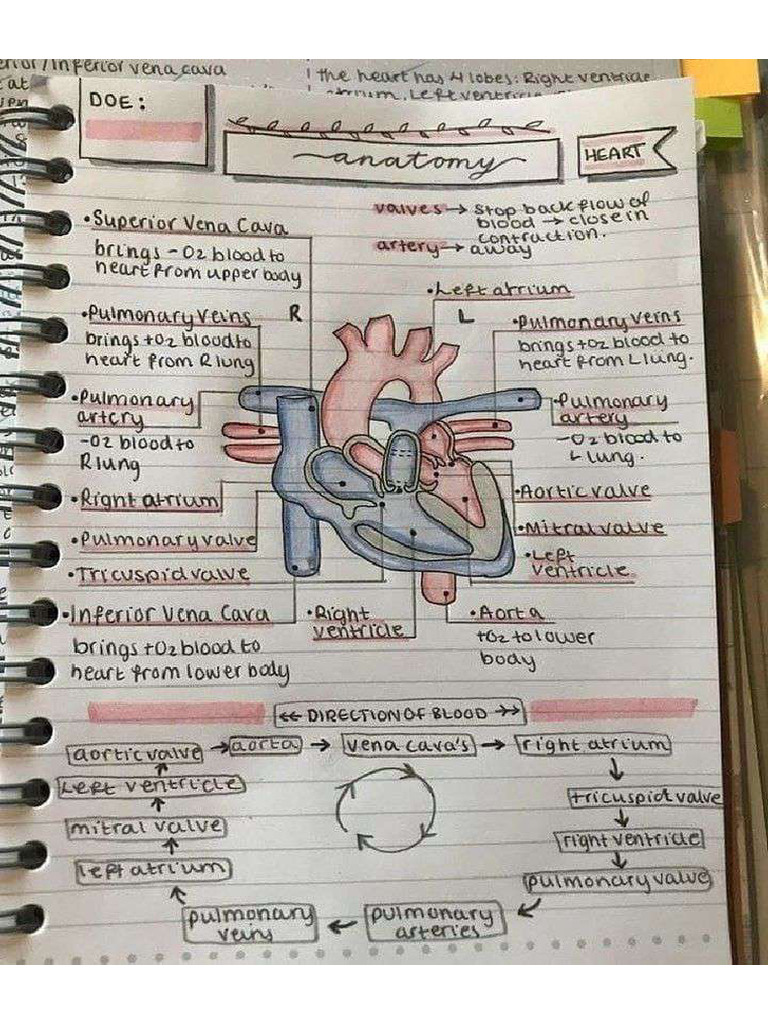 Inferior vena cava
the heart has 4 lobes: Right ventricle
Left ventricle
DOE:
anatomy
HEART
valves → stop back flow of
blood → close in
contraction.
artery → away
•Superior Vena Cava
brings -O2 blood to
heart from upper body
•Pulmonary Veins
brings +O2 blood to
heart from R lung
R
•Left atrium
L
•Pulmonary veins
brings +O2 blood to
heart from L lung.
•Pulmonary
artery
-O2 blood to
R lung
•Pulmonary
artery
-O2 blood to
L lung.
•Right atrium
•Aortic valve
•Pulmonary valve
•Mitral valve
•Tricuspid valve
•Left
ventricle
•Inferior Vena Cava
brings +O2 blood to
heart from lower body
•Right
ventricle
•Aorta
+O2 to lower
body
<<- DIRECTION OF BLOOD ->>
aortic valve → aorta → vena cava's → right atrium
left ventricle
tricuspid valve
mitral valve
right ventricle
left atrium
pulmonary valve
pulmonary
veins
← pulmonary
arteries